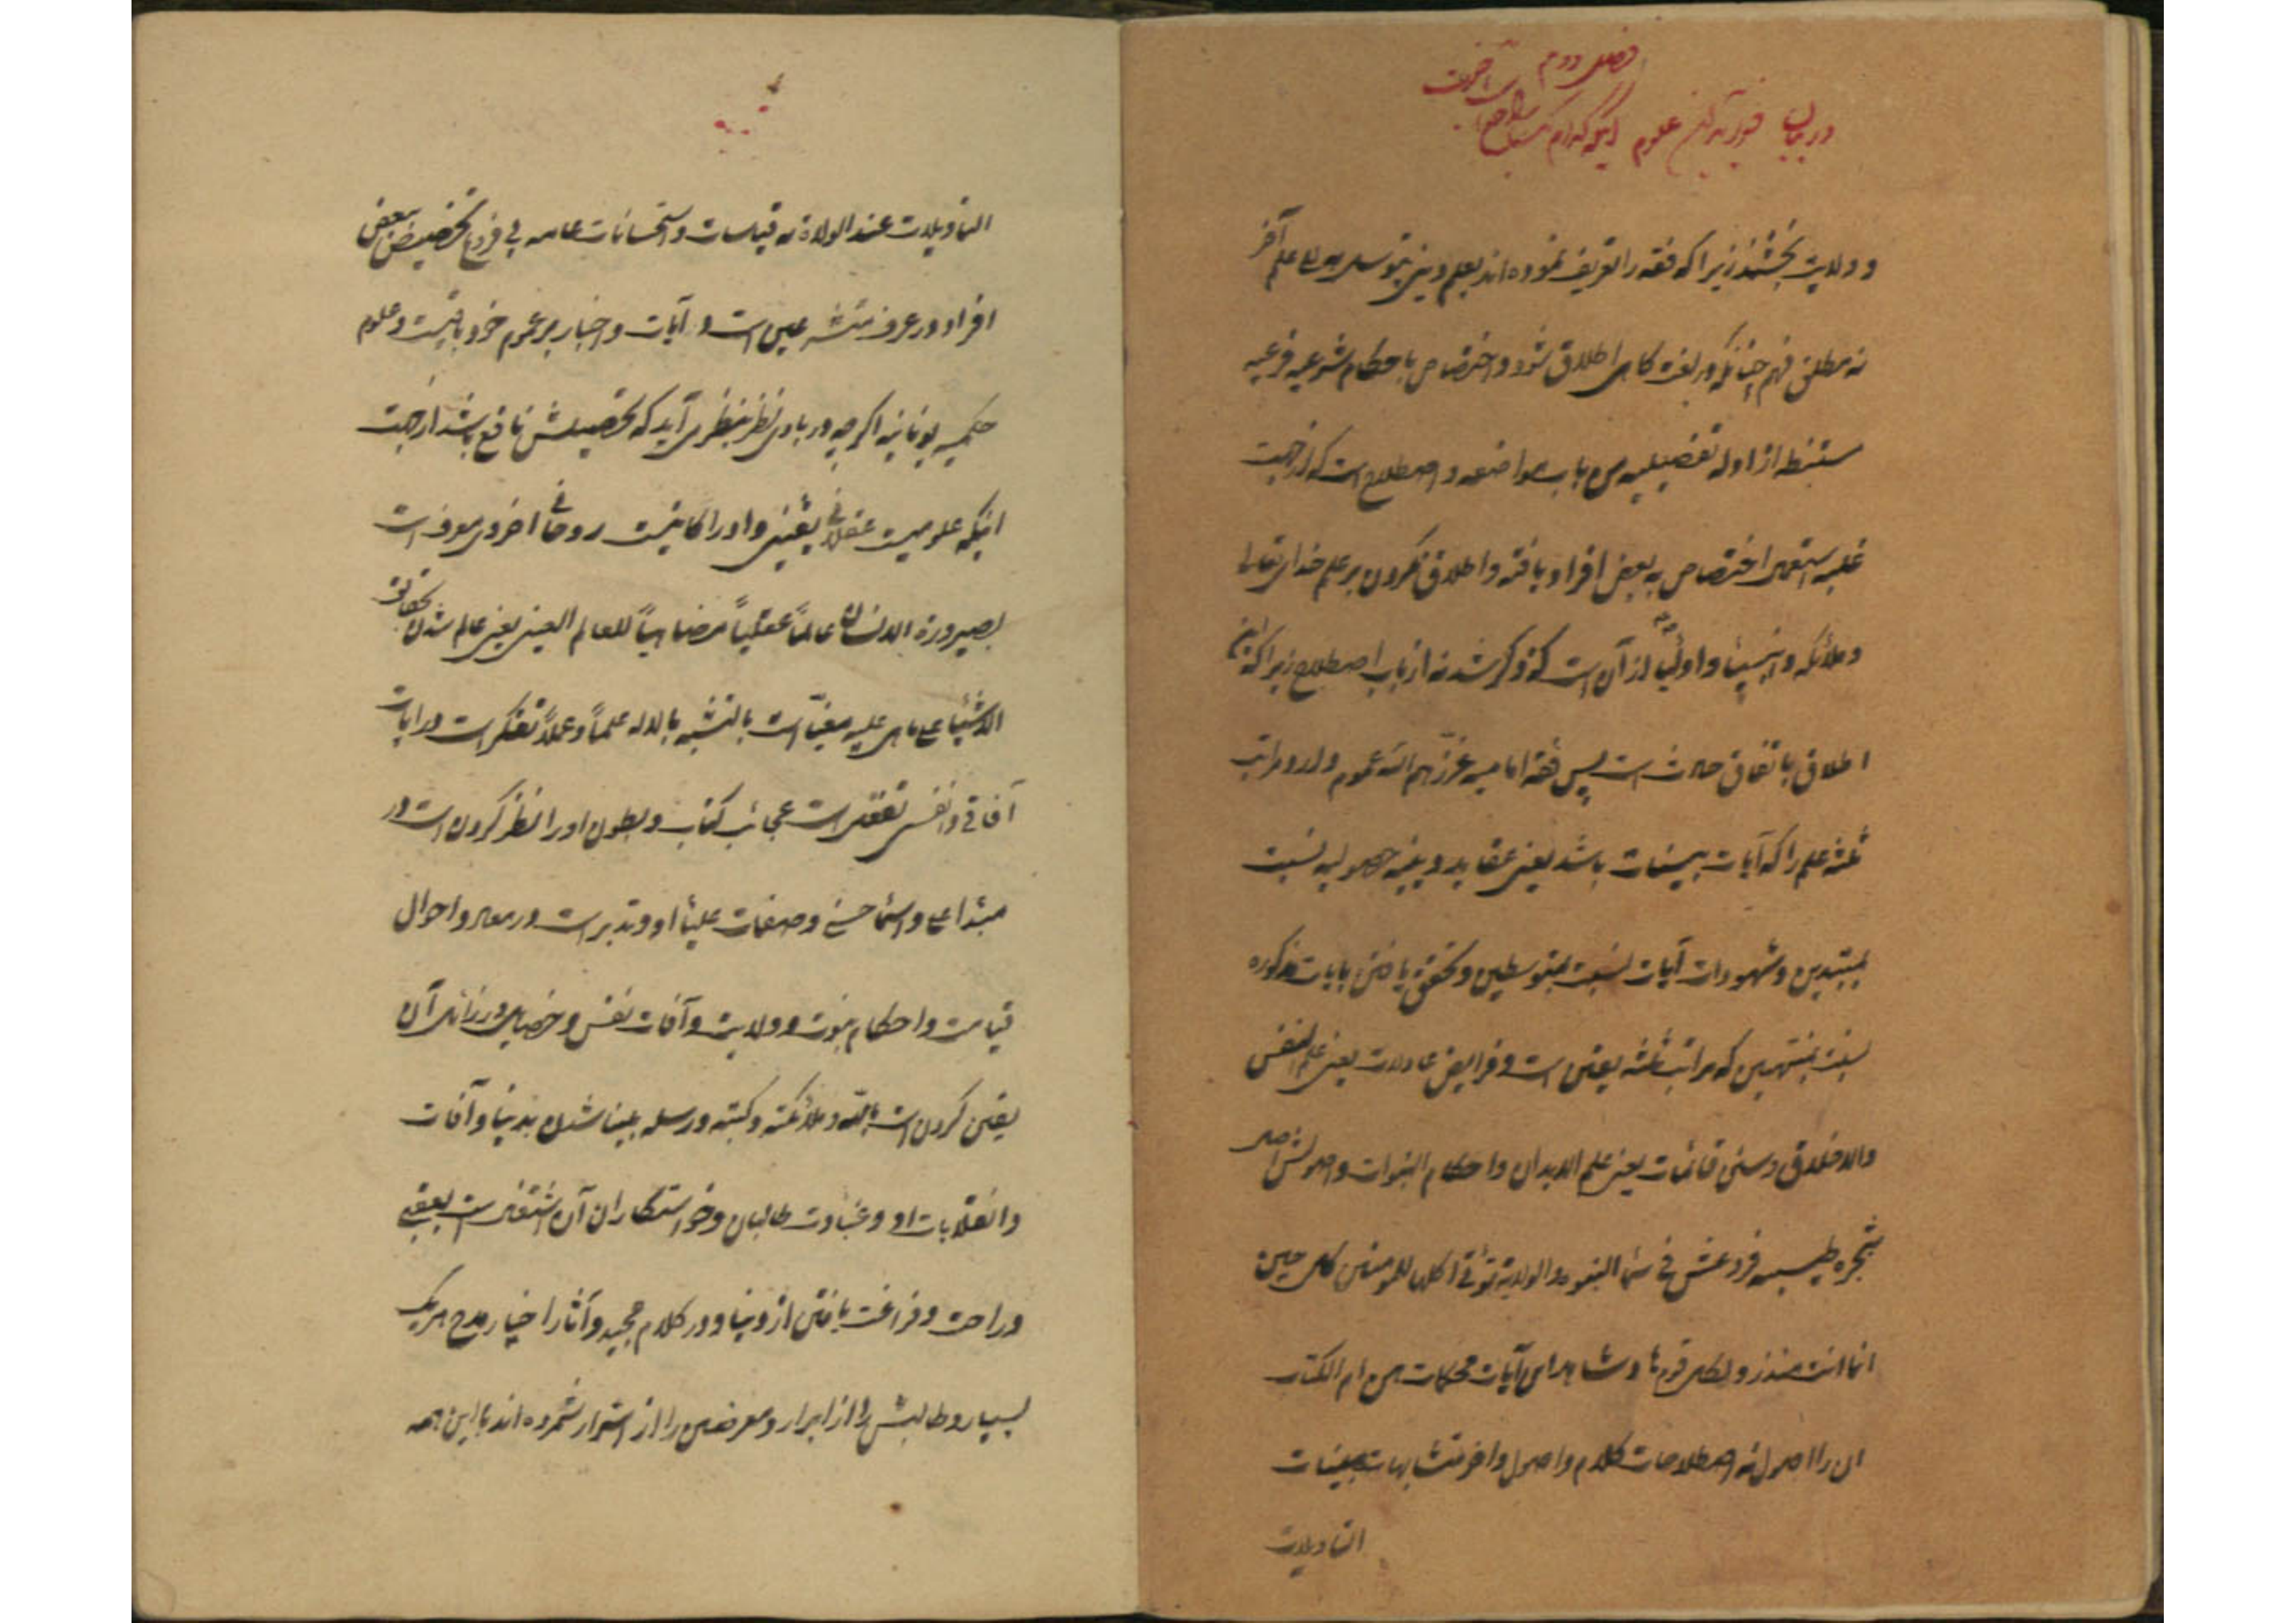 فصل دوم
در بیان فوز به این علوم اینکه کدام
و ولایت بخشند زیرا که فقه را تعریف نموده‌اند بعلم دینی یتوسل به الی علم آخر
نه مطلق فهم چنانکه در لغة گاهی اطلاق شود و اختصاص باحکام شرعیه فرعیه
مستنبطه از ادله تفصیلیه من باب مواضعه و اصطلاح است که از جهت
غلبه استعمال اختصاص به بعض افراد یافته و اطلاق نکردن بر علم خدای تعالی
و ملائکه و انبیاء و اولیاء از آن است که ذکر شد نه از باب اصطلاح زیرا که این
اطلاق باتفاق حادث است پس فقه امامیه عززهم الله عموم دارد مراتب
ثلثه علم را که آیات بینات باشد یعنی عقاید دینیه حصولیه نسبت
بمبتدین و شهودات آیات نسبت بمتوسطین و تحقق یافتن بآیات مذکوره
نسبت بمنتهین که مراتب ثلثه یقین است و فرایض عادلات یعنی علم النفس
والاخلاق و سنن قائمات یعنی علم الابدان و احکام النبوات و اصولش اصل
شجره طیبه فروعش فی سماء النبوة والولایة تؤتی اکلها للمؤمنین کل حین
انما انت منذر و لکل قوم هاد شاهد این آیات محکمات هن ام الکتاب
این را اصول نه اصطلاحات کلام و اصول و اخر متشابهات مبینات
التاویلات
التاویلات عند الولاة نه قیاسات و استحسانات عامه فی فروع تخصیص بعض
افراد در عرف متشرعین است و آیات و اخبار بر عموم خود باقیست و علوم
حکمیه یونانیه اگرچه در بادی نظر بنظر می‌آید که تحصیلش نافع باشد از جهت
اینکه علومیست عقلانی یقینی و ادراکاتیست روحانی اخروی معرف است
بصیرورة الانسان عالماً عقلیاً مضاهیاً للعالم العینی یعنی عالم شدن بحقائق
الاشیاء علی ما هی علیه مغیا است بالتشبه بالاله علماً و عملاً تفکر است در آیات
آفاقی و انفسی تفقه است عجائب کتاب و بطون او را نظر کردن است در
مبتدا علی و اسماء حسنی و صفات علیاء او و تدبر است در معاد و احوال
قیامت و احکام نبوت و ولایت و آفات نفس و خصایل و رذائل آن
یقین کردن است بالله و ملائکته و کتبه و رسله بینا شدن بدنیا و آفات
و انقلابات او و غباوت طالبان و خواستکاران آن اشتغال است بعقبی
و راحت و فراغت یافتن از دنیا و در کلام مجید و آثار اخیار مدح هر یک
بسیار و طالبش را از ابرار و معرضین را از اشرار شمرده‌اند با این همه